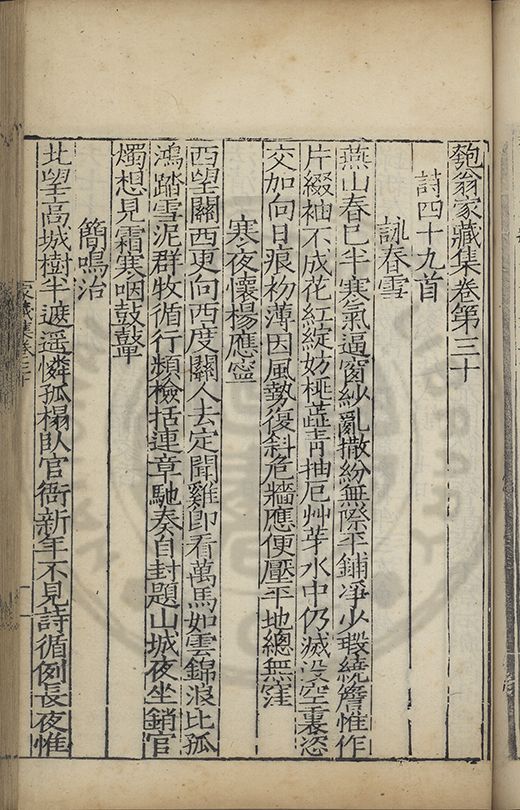 匏翁家藏集卷第三十
詩四十九首
詠春雪
燕山春已半寒氣逼窗紗亂撒紛無際平鋪凈少瑕繞簷惟作
片綴袖不成花紅綻妨桃蘂青抽厄艸芽水中仍滅没空裏恣
交加向日痕初薄因風勢復斜危牆應便壓平地總無窪
寒夜懷楊應寧
西望關西更向西度關人去定聞雞即看萬馬如雲錦浪比孤
鴻踏雪泥群牧循行頻檢括連章馳奏自封題山城夜坐銷官
燭想見霜寒咽鼓鼙
簡鳴治
北望高城樹半遮遥憐孤榻臥官衙新年不見詩循例長夜惟